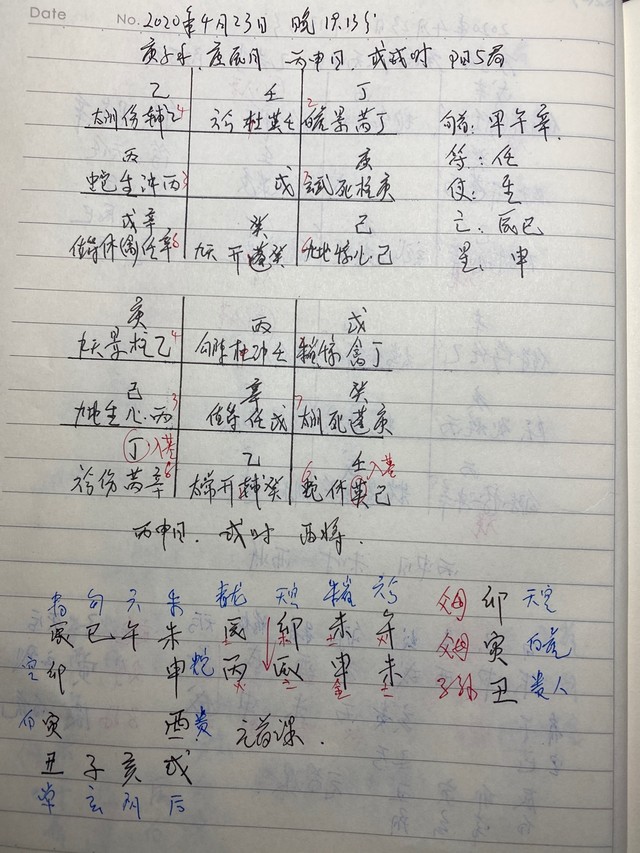 Date No. 2020年4月23日 晚19.13分
庚子年 庚辰月 丙申日 戊戌时 阳5局
乙 壬 丁
太阴伤辅乙4 六合杜英壬 2白虎景芮丁 旬首:甲午辛
丙 庚 符:任
蛇生冲丙3 戊 死柱庚 使:生
戊辛 癸 己 亡:辰巳
值符休任辛8 九天开蓬癸 九地惊心己 星:申
庚 丙 戊
九天景柱乙4 杜冲壬 惊禽丁
己 辛 癸
九地生心丙3 值符任戊 7太阴死蓬庚
丁入墓 乙 壬入墓
六合伤芮辛8 开辅癸 6蛇休英己
丙申日 戌时 酉将
青 勾 六 朱 青龙 天空 朱雀 六合 父母 卯 天空
辰 巳 午 未 辰 卯 未 午 父母 寅 白虎
空 卯 申 蛇 丙 辰 申 未 子孙 丑 贵人
白 寅 酉 贵 元首课.
丑 子 亥 戌
常 玄 阴 后